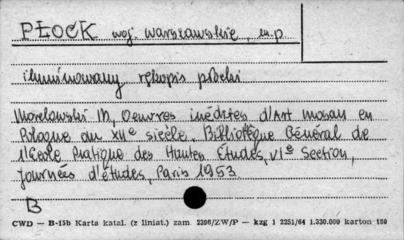 PŁOCK woj. warszawskie, m.p
iluminowany rękopis płocki
Morelowski M, Oeuvres inédites d'Art mosan en
Pologne au XIIe siècle, Bibliothèque Général de
l'École Pratique des Hautes Études, VIe Section,
Journées d'études, Paris 1953
B
CWD — B-15b Karta katal. (z liniat.) zam. 2306/ZW/P — kzg 1 2251/64 1.330.000 karton 180